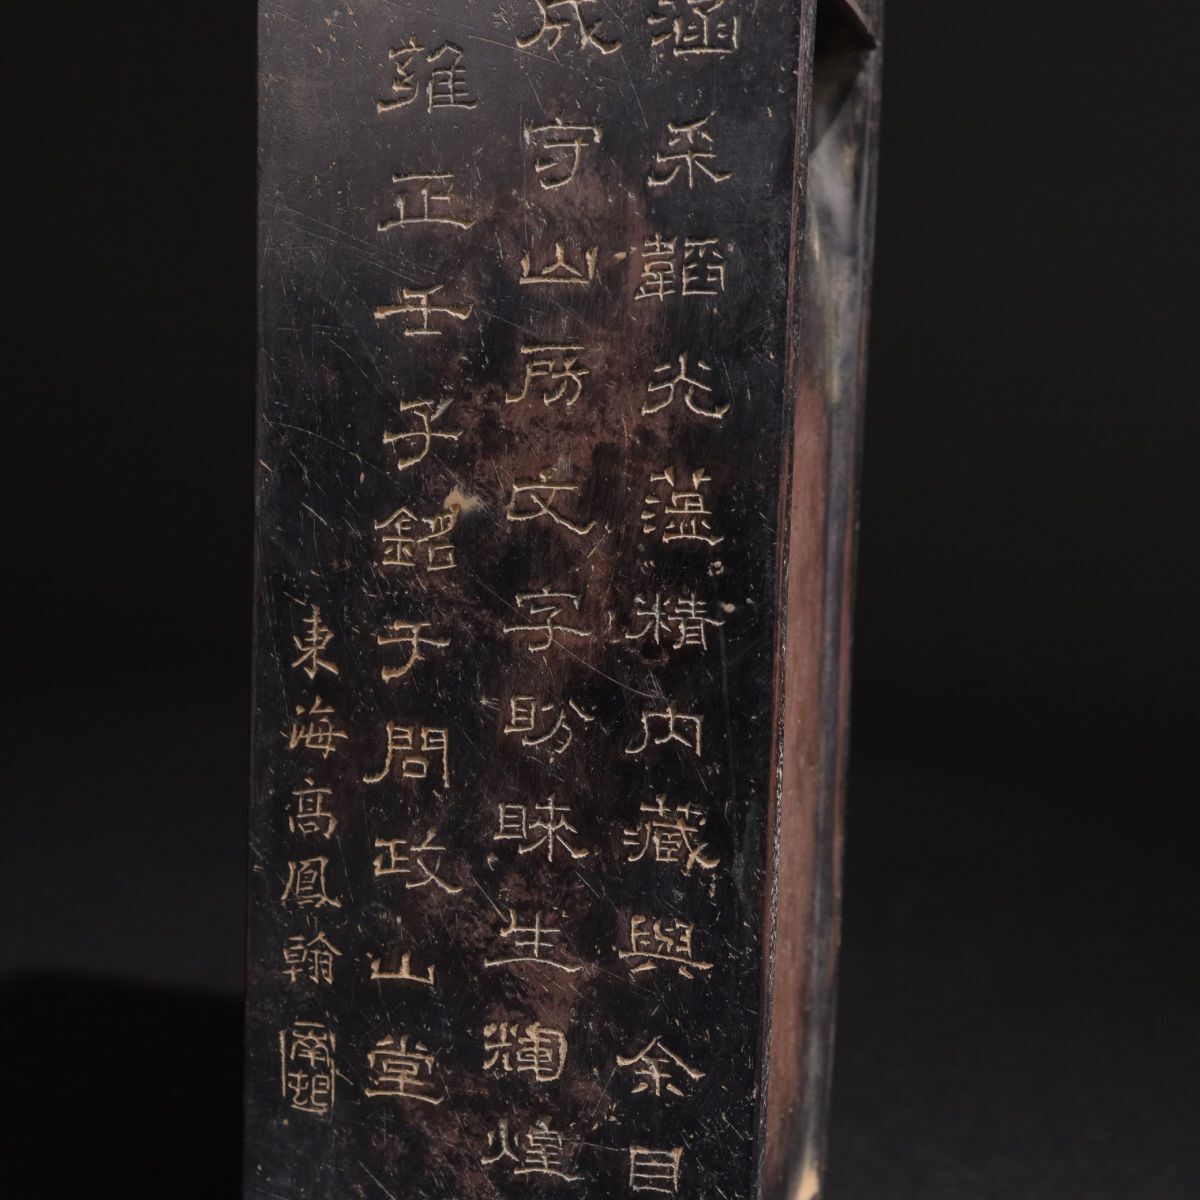 涵采韜光蕴精内藏與余目
成守山房文字盼睞生輝煌
雍正壬子銘于問政山堂
東海高鳳翰
南邨